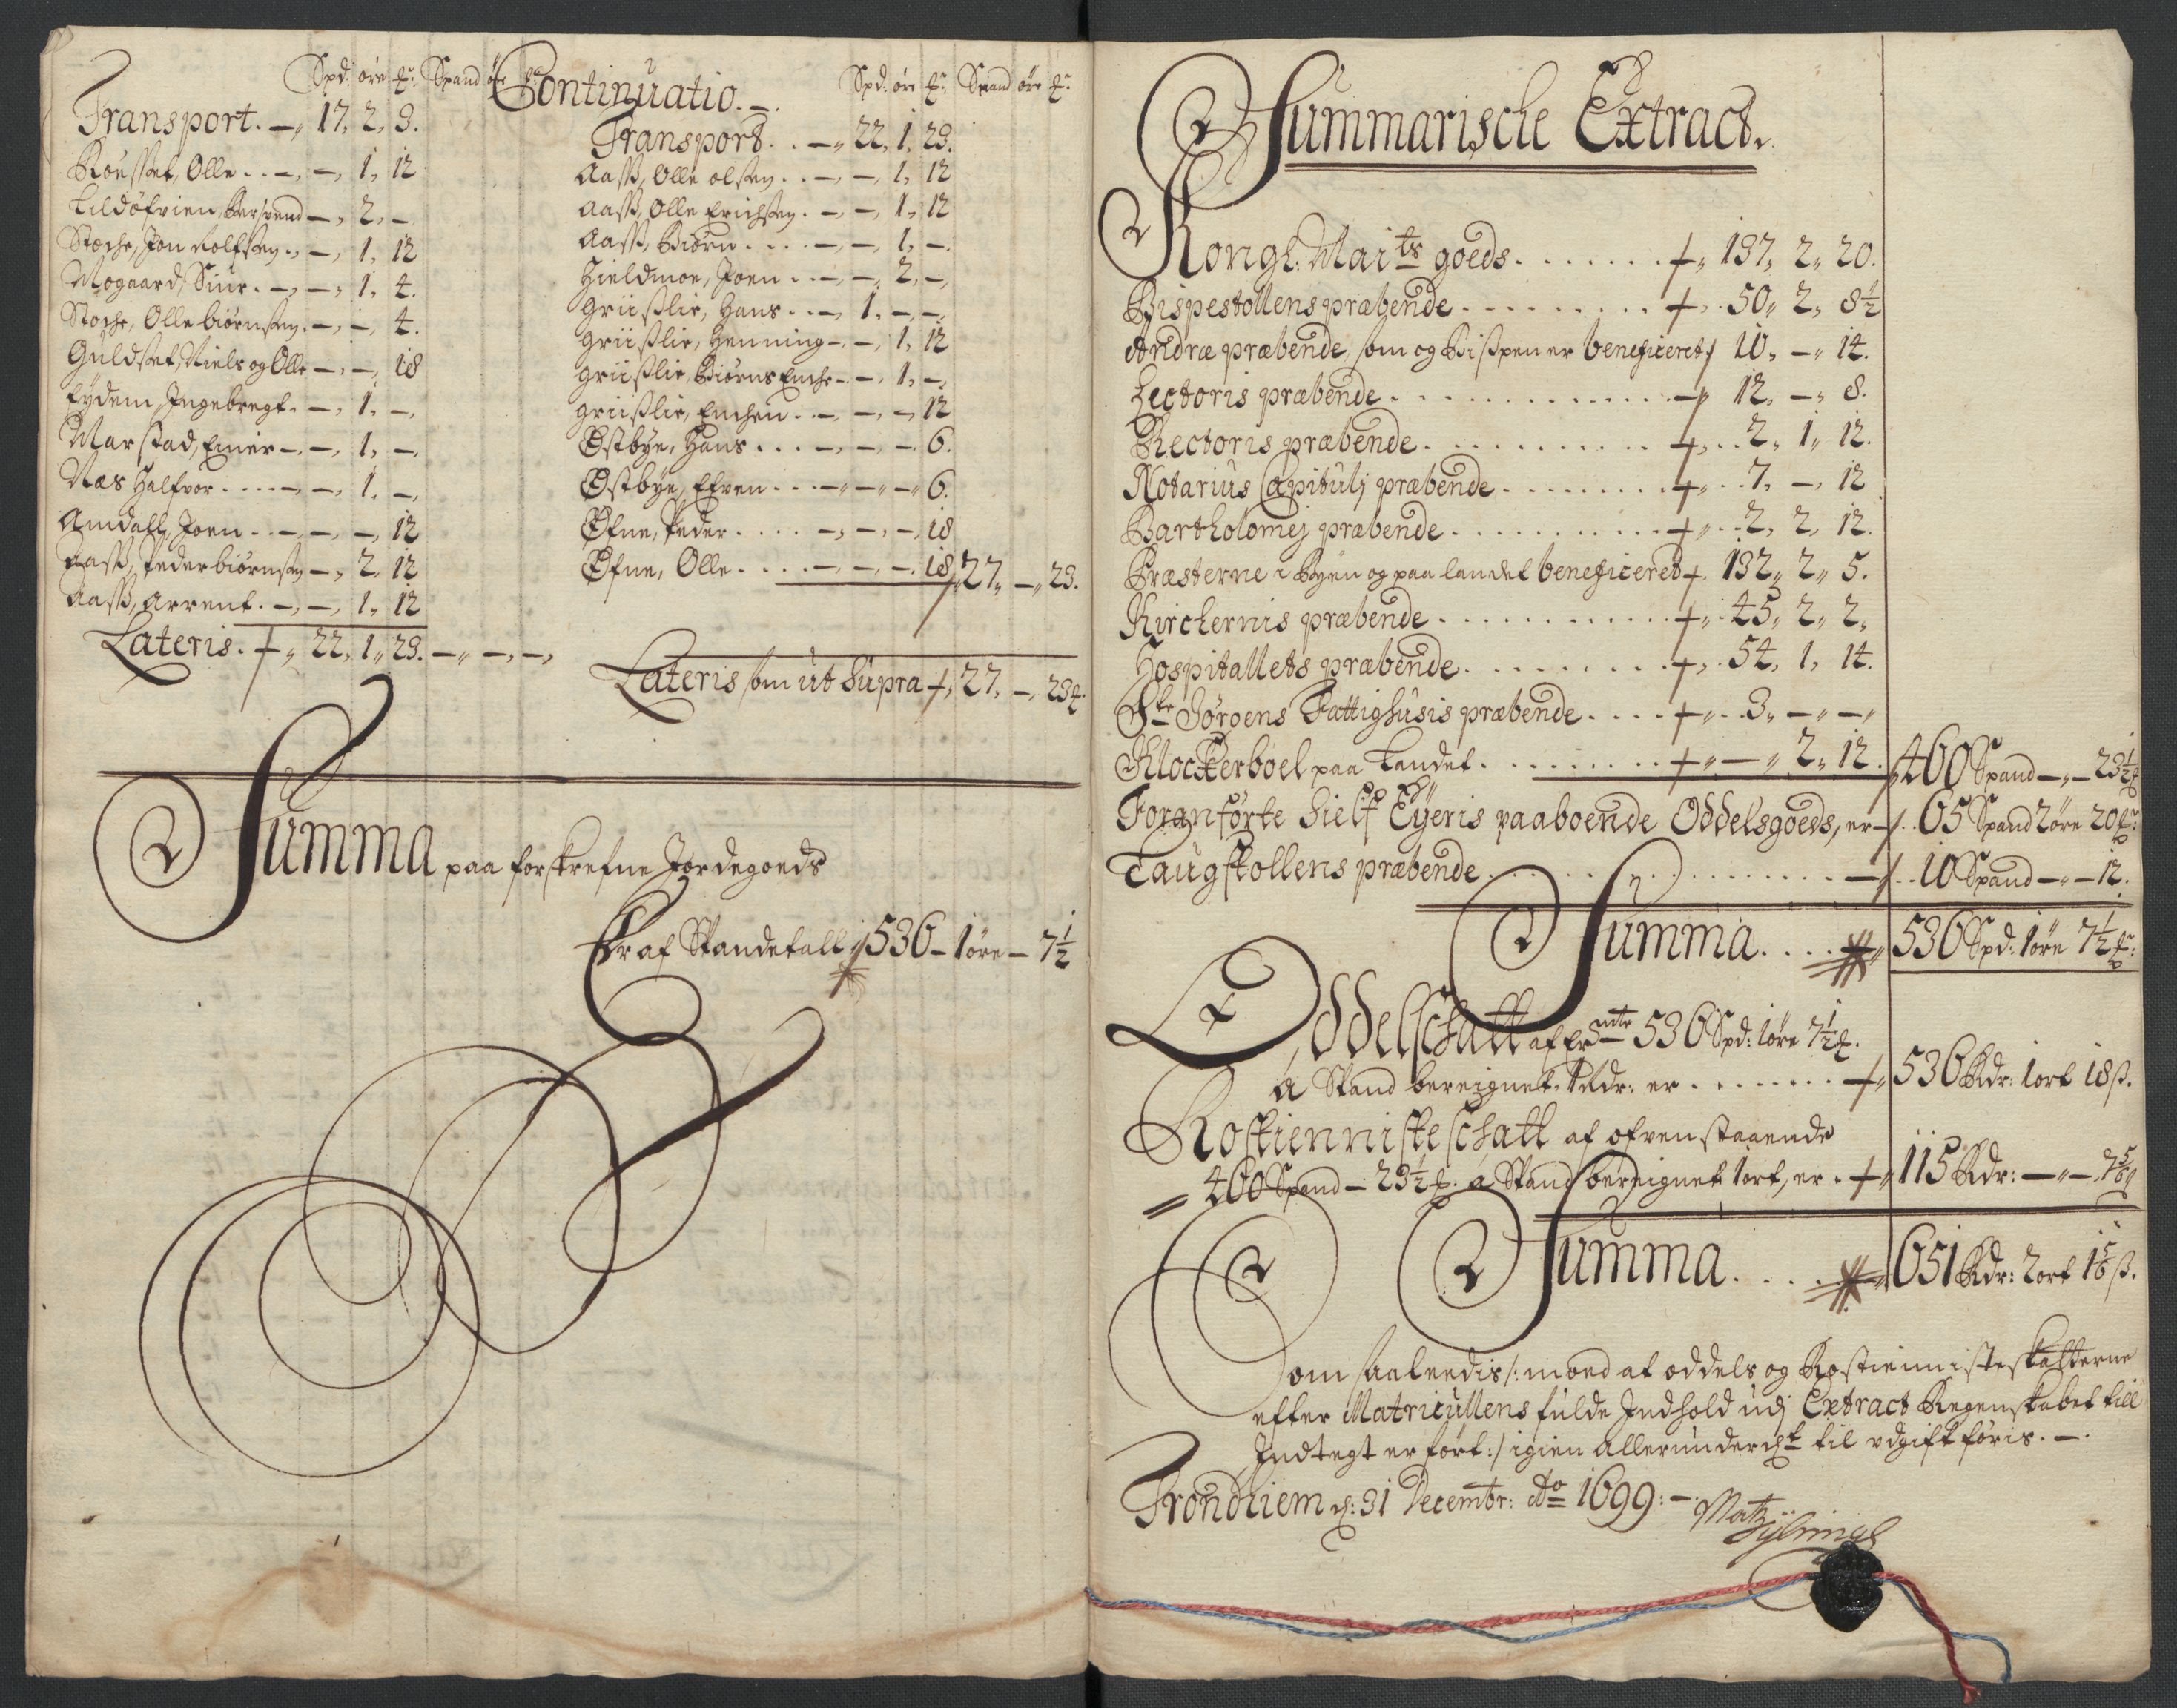 Spd: øre ꝶ: Spand øre ꝶ
Transport. — 17, 2, 3.
Rousset, Olle . . — — 1, 12
Lildøfvien, Bersvend — 2, —
Stoche, Jon Rolfsen . — 1, 12
Mogaard, Siur . — — 1, 4.
Stoche, Olle biørnsen . — — 4.
Guldset, Niels og Olle — — 18
Eydem, Ingebregt . — 1, —
Marstad, Einer — — 1, —
Næs Halfvor . . . . — — 1, —
Amdall, Joen . . — — — 12
Aass, Peder biørnsen — 2, 12
Aass, Arrent . — — 1, 12
Lateris . 22, 1, 23. — — —
Continuatio. —
Spd: øre ꝶ: Spand øre ꝶ:
Transport . . — 22, 1, 23.
Aass, Olle olsen . . — — 1, 12
Aass, Olle Erichsen . — — 1, 12
Aass, Biørn . . . . — — 1, —
Hieldmoe, Joen . . — — 2, —
Griislie, Hans . . — 1, — —
Griislie, Henning — — 1, 12
Griislie, Biørns Enche — — 1, —
Griislie, Enchen . . — — — 12
Østbye, Hans . . . — — — 6.
Østbye, Efven . . . — — — 6.
Øfne, Peder . . . . — — — 18
Øfne, Olle . . . . — — — 18 27, — 23.
Lateris som ut Supra 27, — 23 ꝶ.
Summa paa forskrefne Jordegoeds
Er af Spandetall 536 — 1 øre — 7½
Summarische Extract.
Kongl: Maits goeds . . . . . . . 137, 2, 20.
Bispestollens præbende . . . . . . . . . 50, 2, 8½
Andræ præbende, som og Bispen er beneficeret 10, — 14.
Lectoris præbende . . . . . . . . . . . . . 12, — 8.
Rectoris præbende . . . . . . . . . . . 2, 1, 12.
Notarius Capitulj præbende . . . . . . . . 7, — 12
Bartholomej præbende . . . . . . . . . . 2, 2, 12.
Præsterne i Byen og paa landet beneficeret 132, 2, 5.
Kirckernis præbende . . . . . . . . . . . . 45, 2, 2,
Hospitallets præbende . . . . . . . . . 54, 1, 14.
Ste Jørgens Fattighusis præbende . . . . 3, — —
Klockerboel paa Landet . . . . . . . . . — 2, 12. 460 Spand — — 23½ ꝶ
Foranførte Sielf Eyeris paaboende Oddelsgoeds, er 65 Spand 2 øre 20 ꝶ:
Taugstollens præbende . . . . . . . . . . . . 10 Spand — — 12.
Summa . . . . 536 Spd: 1 øre 7½ ꝶ:
Oddelschatt af Ermte 536 Spd: 1 øre 7½ ꝶ.
a Spand bereignet 1 Rdr: er . . . . . . . 536 Rdr: 1 ort 18 ß.
Rostienniste schatt af ofvenstaaende
460 Spand — 23½ ꝶ. a Spand bereignet 1 ort, er . 115 Rdr: — — 7⅚ ß
Summa . . . . 651 Rdr: 2 ort 1⅚ ß.
Som saaledis /: moed at oddels og Rostiennisteskatterne
efter Matricullens fulde Indhold udj Extract Regenskabet till
Indtegt er ført :/ igien allerunderdst til udgift føris. —
Trondhiem d: 31 Decembr: Ao 1699: —